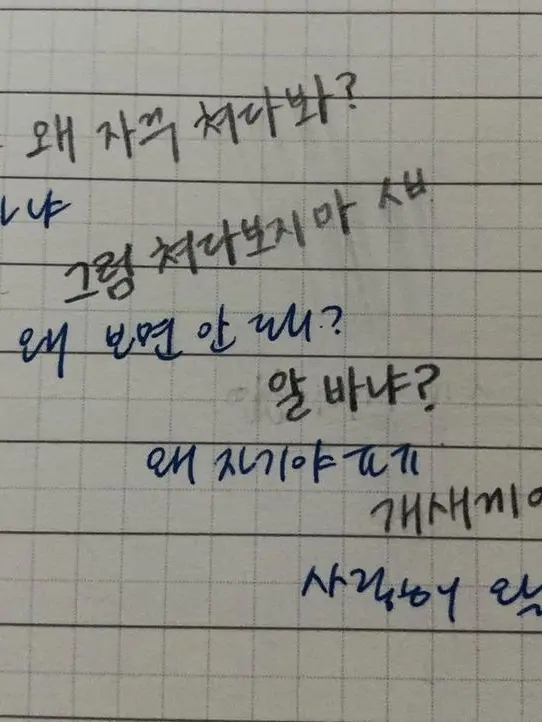 왜 자꾸 쳐다봐?
냐
그럼 쳐다보지 마 ㅅㅂ
왜 보면 안 돼?
알 바냐?
왜 자기야 ㅠㅠ
개새끼야
사랑해